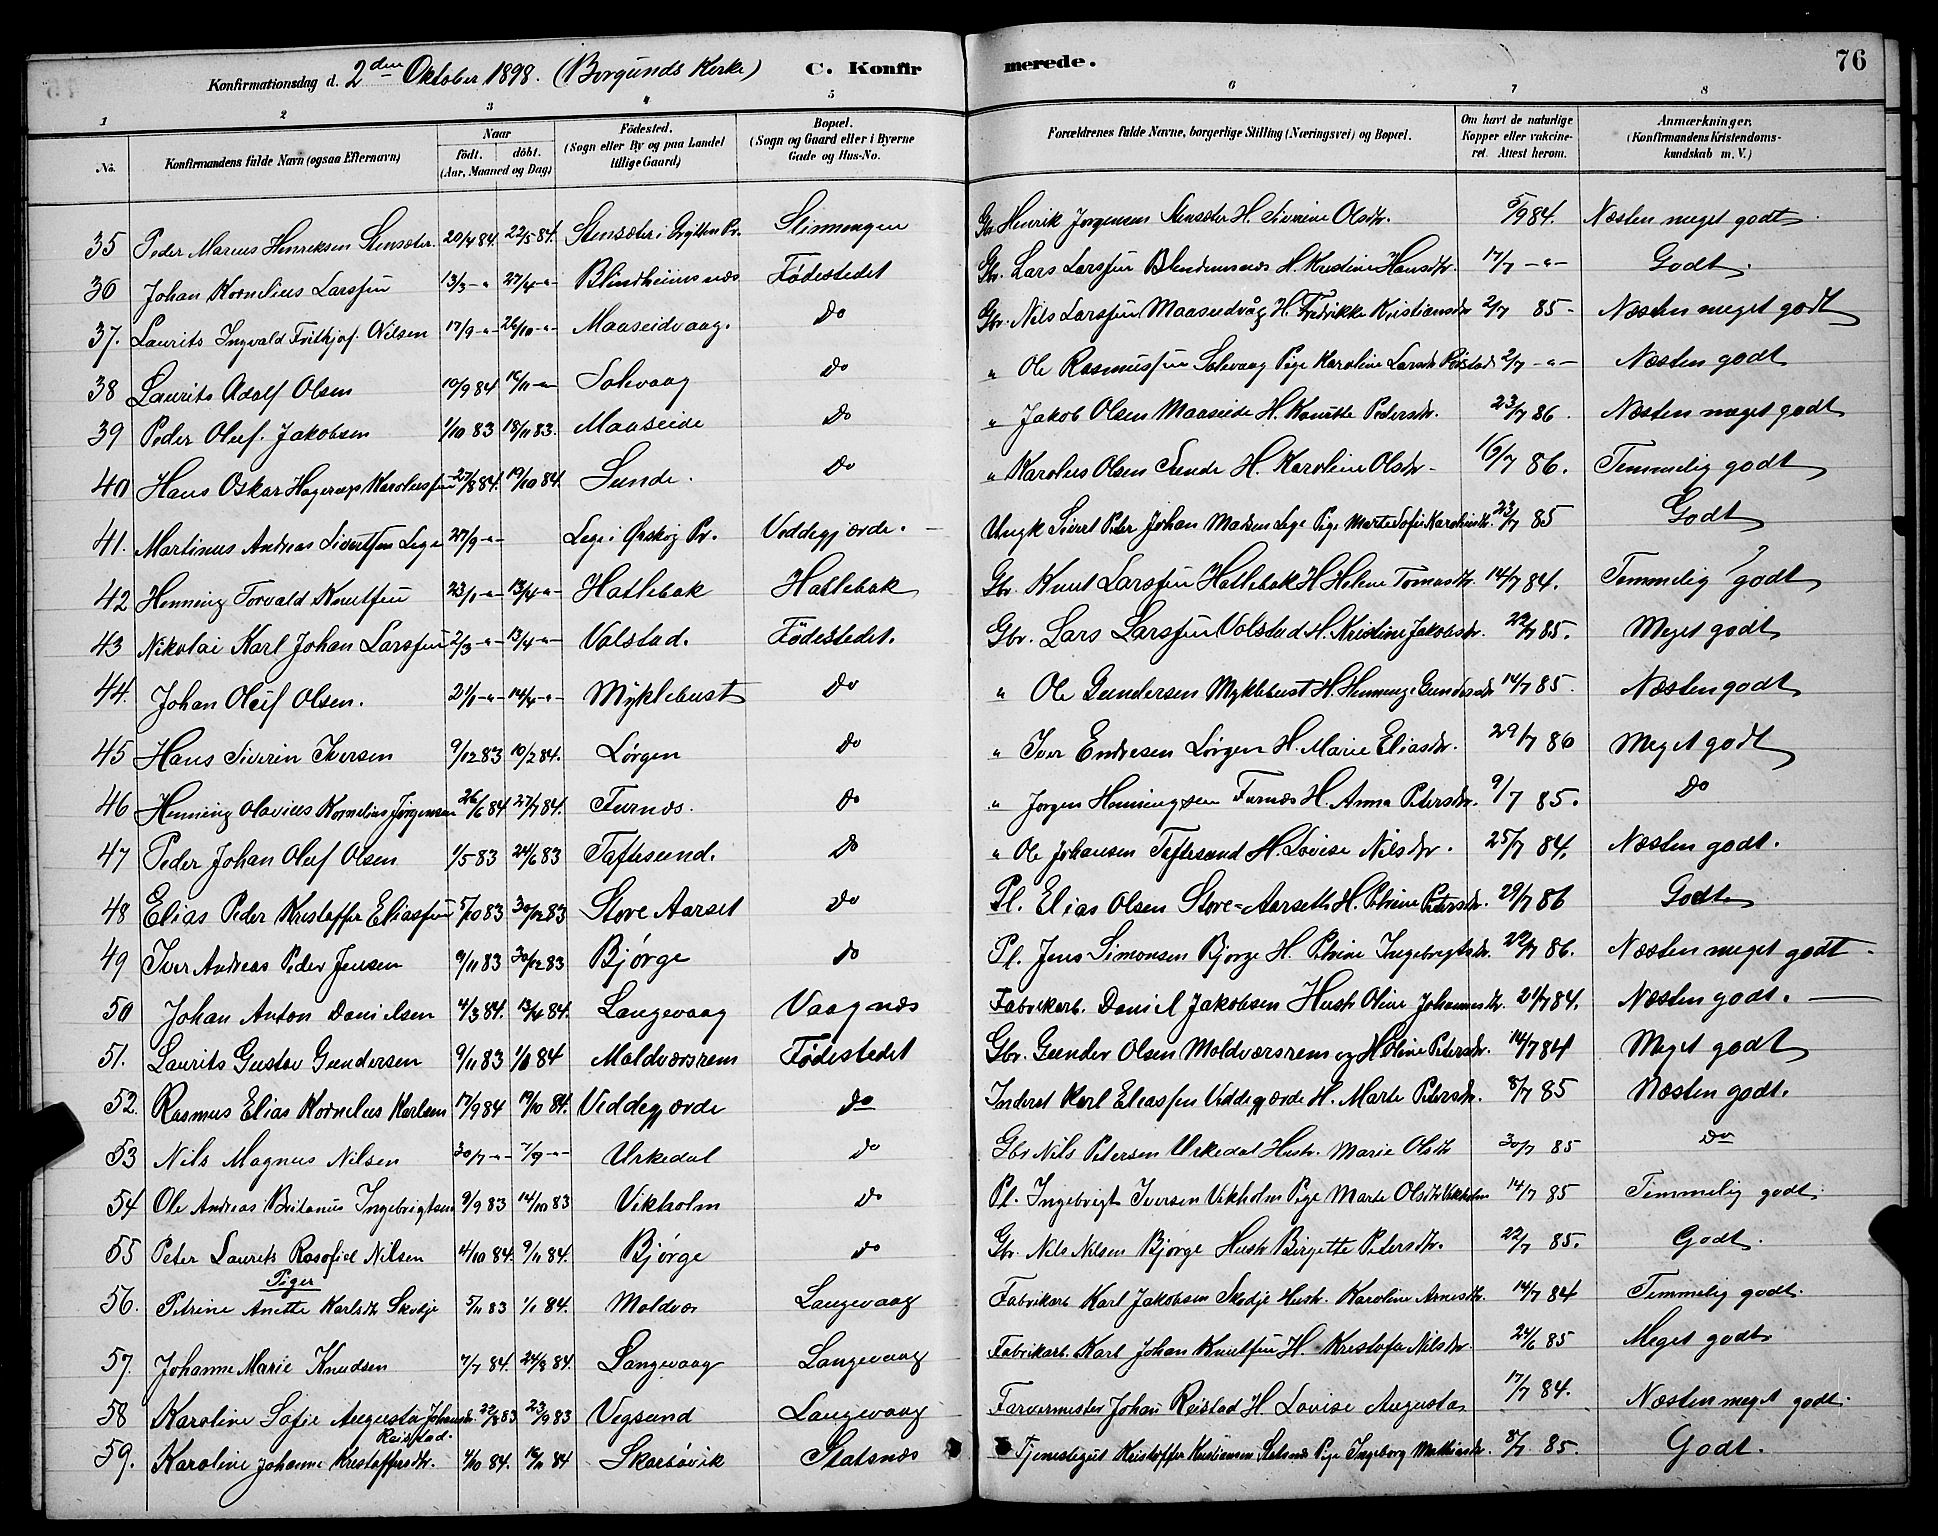 Konfirmationsdag d. 2den Oktober 1898. (Borgunds Kirke) C. Konfirmerede. 76
1 2 3 4 5 6 7 8
No. Konfirmandens fulde Navn (ogsaa Efternavn) Naar født. døbt. (Aar, Maaned og Dag) Fødested. (Sogn eller By og paa Landet tillige Gaard) Bopæl. (Sogn og Gaard eller i Byerne Gade og Hus-No. Forældrenes fulde Navne, borgerlige Stilling (Næringsvei) og Bopæl. Om havt de naturlige Kopper eller vakcineret. Attest herom. Anmærkninger. (Konfirmandens Kristendomskundskab m. V.)
35 Peder Marius Henriksen Stensæter 20/4 84 22/5 84. Stensæter i Pr. Slinningen Gbr Henrik Jørgensen Stensæter H. Siverine Olsdtr. 5/9 84. Næsten meget godt
36 Johan Kornelius Larssen 13/3 -"- 27/4 -"- Blindheimsnæs Fødestedet Gbr. Lars Larssen Blendemsnæs H. Kristine Hansdtr. 17/7 -"- Godt.
37. Laurits Ingvald Frithjof Nilsen 17/9 -"- 26/10 -"- Maaseidvaag. Do Gbr. Nils Larssen Maaseidvåg H. Fredrikke Kristiansdtr 2/7 85 - Næsten meget godt
38 Laurits Adolf Olsen 19/9 84 16/11 -"- Solevaag Do " Ole Rasmussen Solevaag Pige Karoline Larsdtr Røistad 2/7 -"- Næsten godt
39 Peder Oluf Jakobsen 1/10 83 18/11 83. Maaseide Do " Jakob Olsen Maaseide H. Knutte Pedersdtr. 23/7 86. Næsten meget godt
40 Hans Oskar Hagerup Karolussen 27/8 84 19/10 84. Sunde. Do " Karolus Olsen Sunde H. Karoline Olsdtr - 16/7 86. Temmelig godt
41. Martinus Andreas Sivertsen Lege 27/9 -"- Lege i Ørskog Pr. Veddegjærde. Ungk Sivert Peter Johan Madsen Lege Pige Marte Sofie Karolusdtr. 23/7 85 Godt
42 Henning Torvald Knutsen 23/1 -"- 13/4 -"- Hatlebak Hatlebak Gbr. Knut Larssen Hatlebak H Helene Tomasdtr. 14/7 84. Temmelig godt
43 Nikolai Karl Johan Larssen 2/3 -"- 13/4 -"- Valstad. Fødestedet. Gbr. Lars Larssen Volstad H. Kristine Jakobsdtr. 22/7 85. Meget godt
44. Johan Oluf Olsen. 21/1 -"- 14/4 -"- Myklebust Do " Ole Gundersen Myklebust H. Henninge Gundersdtr 14/7 85. Næsten godt
45 Hans Siverin Iversen 9/12 83 10/2 84. Lørgen Do " Iver Endresen Lørgen H. Marie Eliasdtr. 29/7 86 Meget godt
46 Henning Olavius Kornelius Jørgensen 26/6 84 27/7 84. Furnæs. Do " Jørgen Henningsen Furnæs H. Anna Petersdtr. 9/7 85. Do
47 Peder Johan Oluf Olsen 1/5 83 24/6 83 Taftesund. Do " Ole Johansen Taftesund H. Lovise Nilsdtr. 25/7 84. Næsten godt.
48 Elias Peder Kristoffer Eliassen 5/10 83 30/12 83 Store Aarset Do Pl. Elias Olsen Store-Aarseth H. Petrine Petersdtr. 29/7 86 Godt
49 Iver Andreas Peder Jensen 9/11 83 30/12 83 Bjørge Do Pl. Jens Simonsen Bjørge H. Petrine Ingebrigtsdtr. 22/7 86. Næsten meget godt -
50 Johan Anton Danielsen 4/3 84. 13/4 84. Langevaag Vaagnæs Fabrikarb. Daniel Jakobsen Hustr Oline Johannesdtr. 21/7 84. Næsten godt.
51. Laurits Gustav Gundersen 9/11 83 1/1 84 Moldværsrem Fødestedet Gbr. Gunder Olsen Moldværsrem og H Oline Petersdtr. 14/7 84 Meget godt
52. Rasmus Elias Kornelius Karlsen 17/9 84 19/10 84. Veddegjærde do Inderst Karl Eliassen Veddegjærde H. Marte Petersdtr. 8/7 85 Næsten godt.
53 Nils Magnus Nilsen 30/7 -"- 7/9 -"- Urkedal Do Gbr Nils Petersen Urkedal Hustr. Marie Olsdtr 30/7 85 Do
54 Ole Andreas Britanus Ingebrigtsen 9/9 83 14/10 83 Vikholm Do Pl. Ingebrigt Iversen Vekholm Pige Marte Olsdtr Vekholm 14/7 85 Temmelig godt
55 Peter Laurits Rosofiel Nilsen 4/10 84. 9/11 84. Bjørge do Gbr. Nils Nilsen Bjørge Hustr Birgitte Petersdtr. 22/7 85. Godt.
Piger
56. Petrine Anette Karlsdtr Skodje 5/11 83 1/1 84. Moldvær Langevaag Fabrikarb Karl Jakobsen Skodje Hustr. Karoline Arnesdtr. 14/7 84 Temmelig godt.
57. Johanne Marie Knudsen 7/7 84. 24/8 84. Langevaag Langevaag Fabrikarb. Karl Johan Knutsen H. Kristofa Nilsdtr. 24/6 85 Meget godt
58 Karoline Sofie Augusta Johansdtr. Reistad. 22/8 83 23/9 83 Vegsund Langevaag Farvermester Johan Reistad H. Lovise Augusta 17/7 84. Næsten meget godt.
59. Karoline Johanne Kristoffersdtr. 4/10 84. 16/11 84 Skarbøvik Slatsnæs Tjenestegut Kristoffer Kristiansen Slatsnæs Pige Ingeborg Mathiasdtr. 8/7 85. Godt.